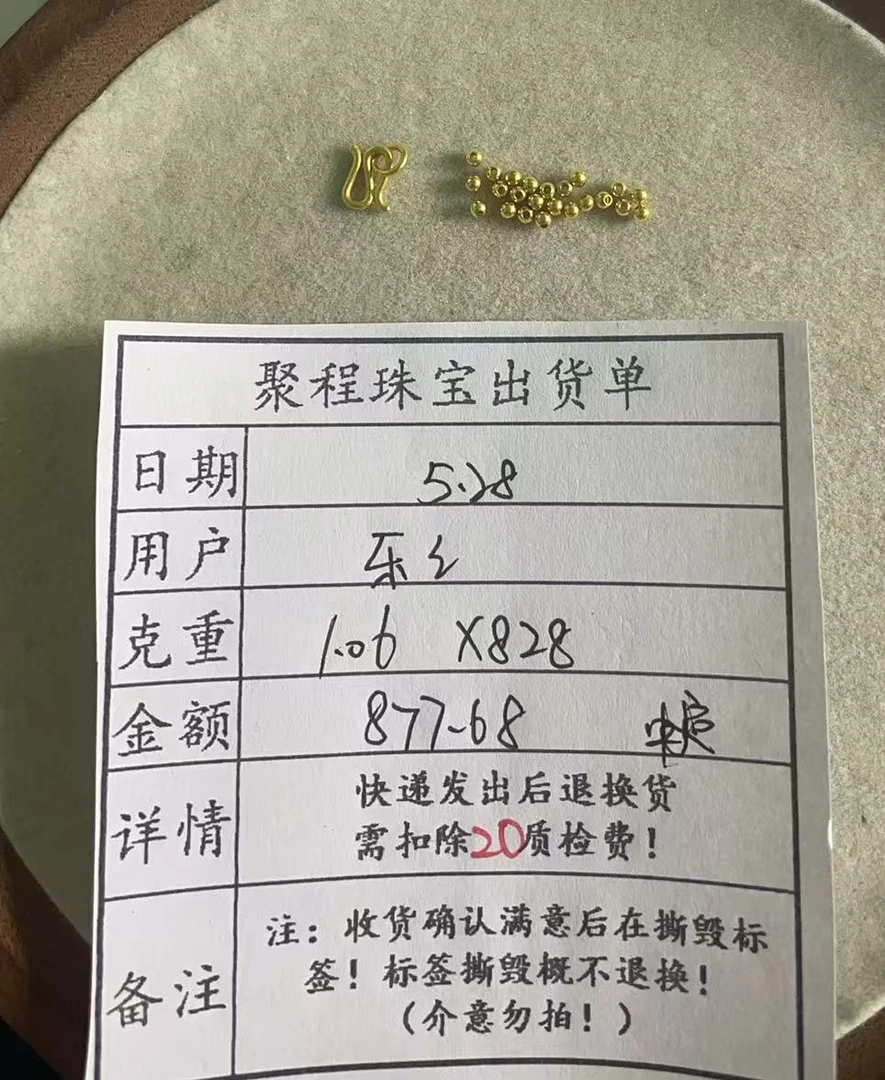 聚程珠宝出货单
日期 5.28
用户
克重 1.06 X828
金额 877.68
详情 快递发出后退换货
需扣除20质检费！
备注 注：收货确认满意后在撕毁标
签！标签撕毁概不退换！
（介意勿拍！）